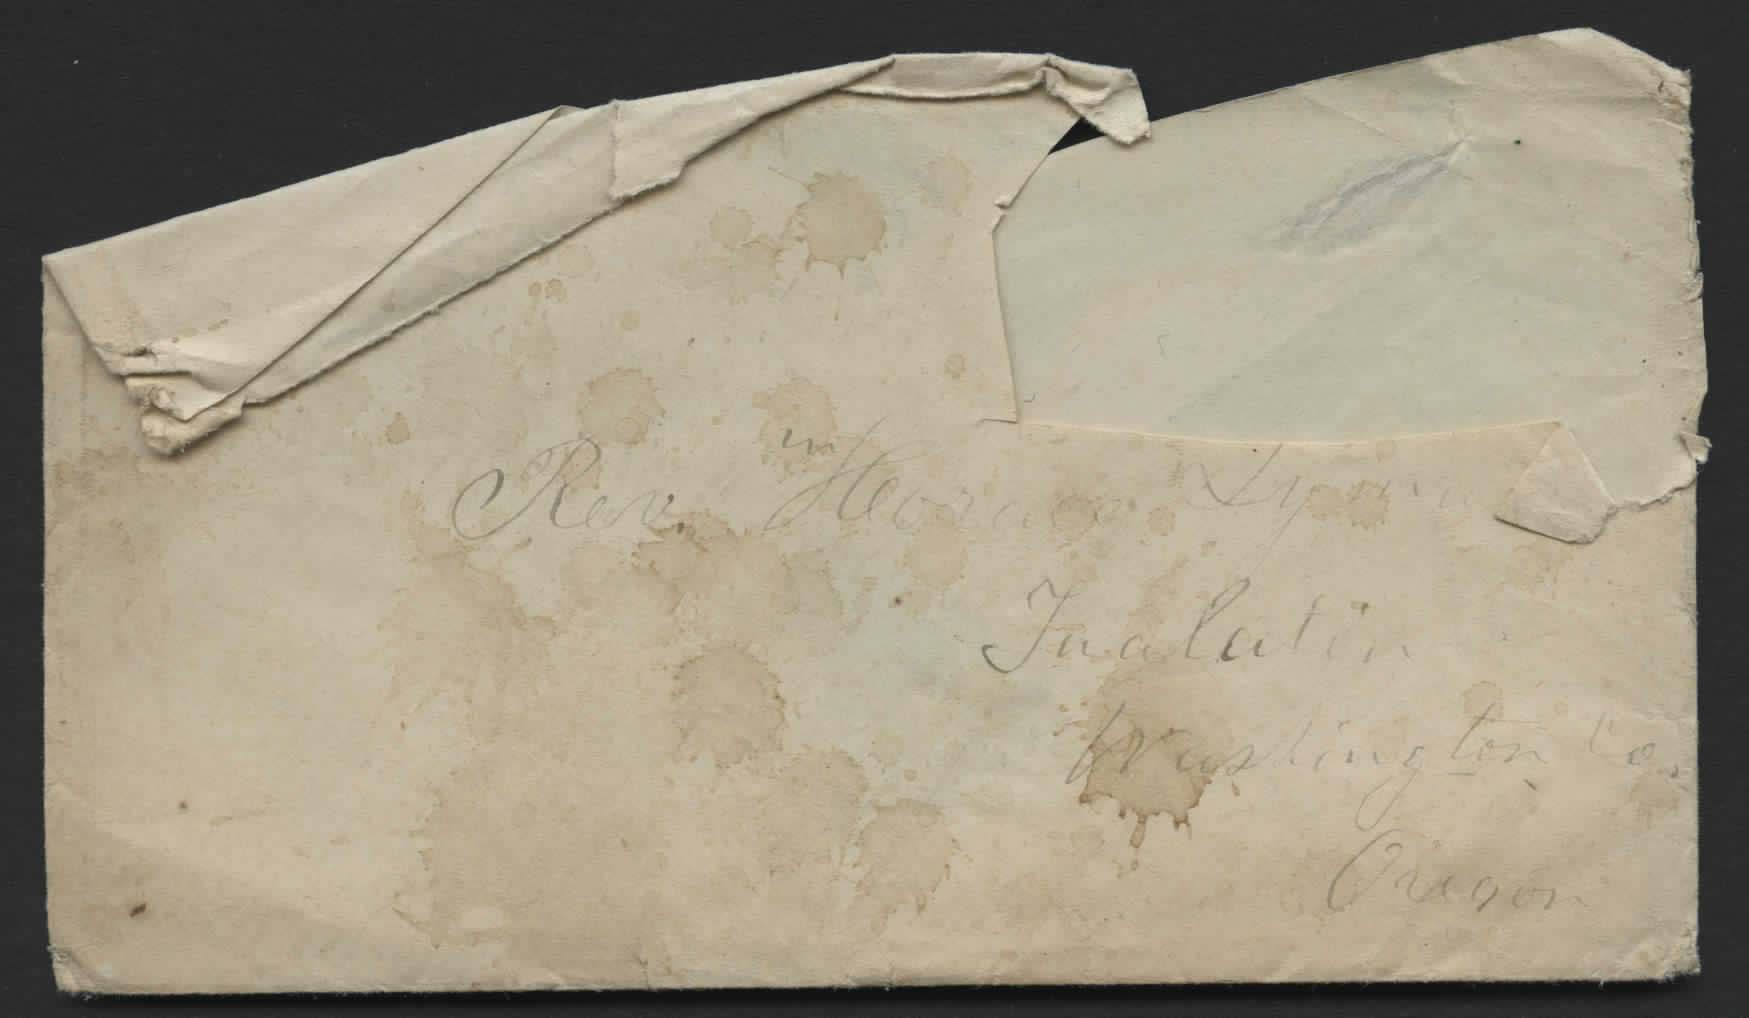 Rev. Horace Lyman
Tualatin
Washington Co.
Oregon